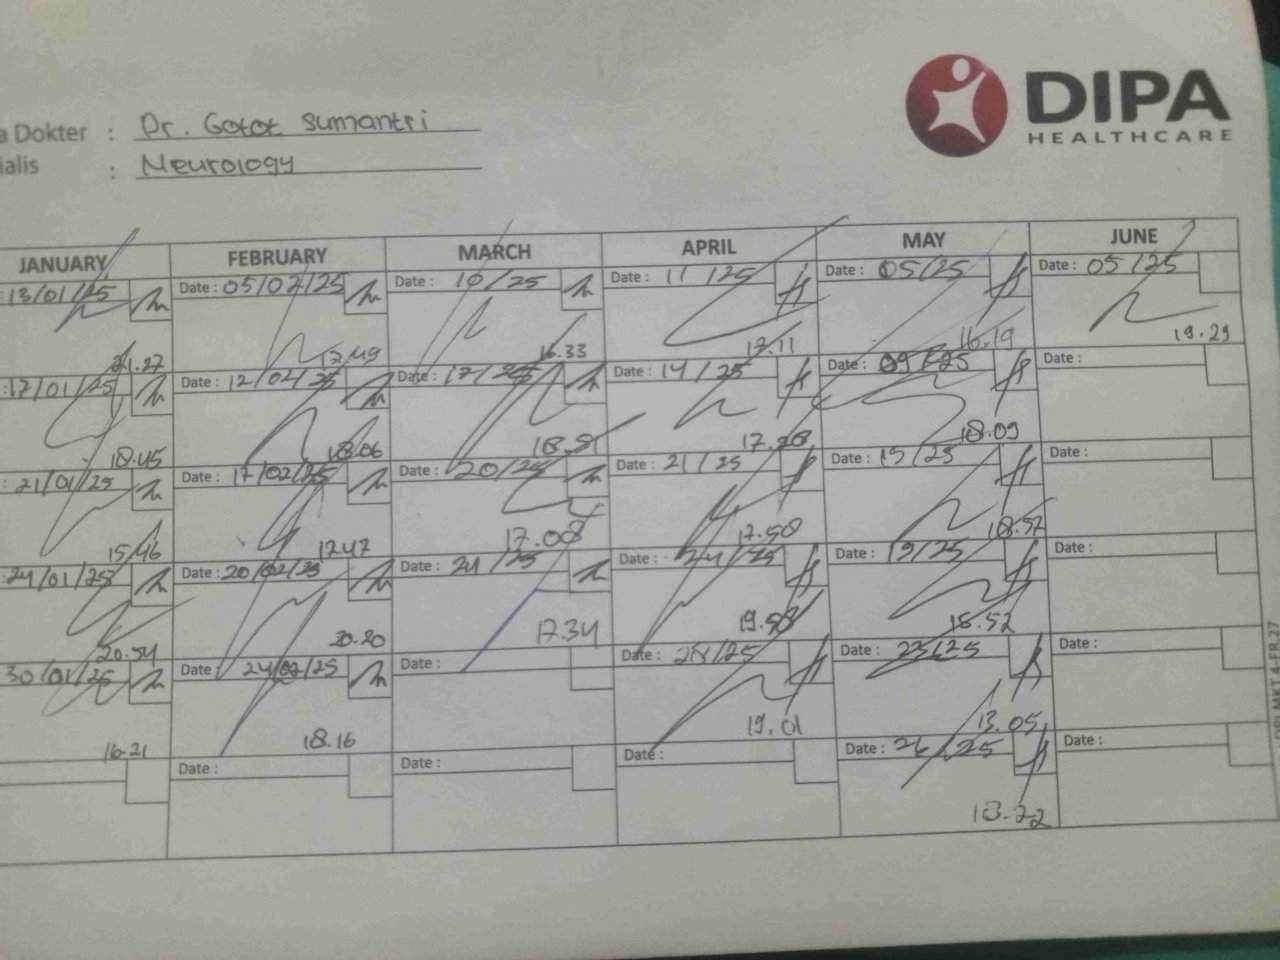 DIPA
HEALTHCARE
a Dokter : Dr. Gotot Sumantri
ialis : Neurology
JANUARY FEBRUARY MARCH APRIL MAY JUNE
: 13/01/25 Date : 05/02/25 Date : 10/25 Date : 11/25 Date : 05/25 Date : 05/25
21.27 17.49 16.33 17.11 16.19 19.29
: 17/01/25 Date : 12/02/25 Date : 17/25 Date : 14/25 Date : 09/25 Date :
18.45 18.06 17.28 18.09
: 21/01/25 Date : 17/02/25 Date : 20/25 Date : 21/25 Date : 15/25 Date :
15.46 17.47 17.08 17.58 18.57
: 24/01/25 Date : 20/02/25 Date : 24/25 Date : 24/25 Date : 19/25 Date :
20.54 20.20 17.34 19.58 18.52
30/01/25 Date : 24/02/25 Date : Date : 28/25 Date : 23/25 Date :
16.21 18.16 19.01 13.05
Date : Date : Date : Date : 26/25 Date :
18.22